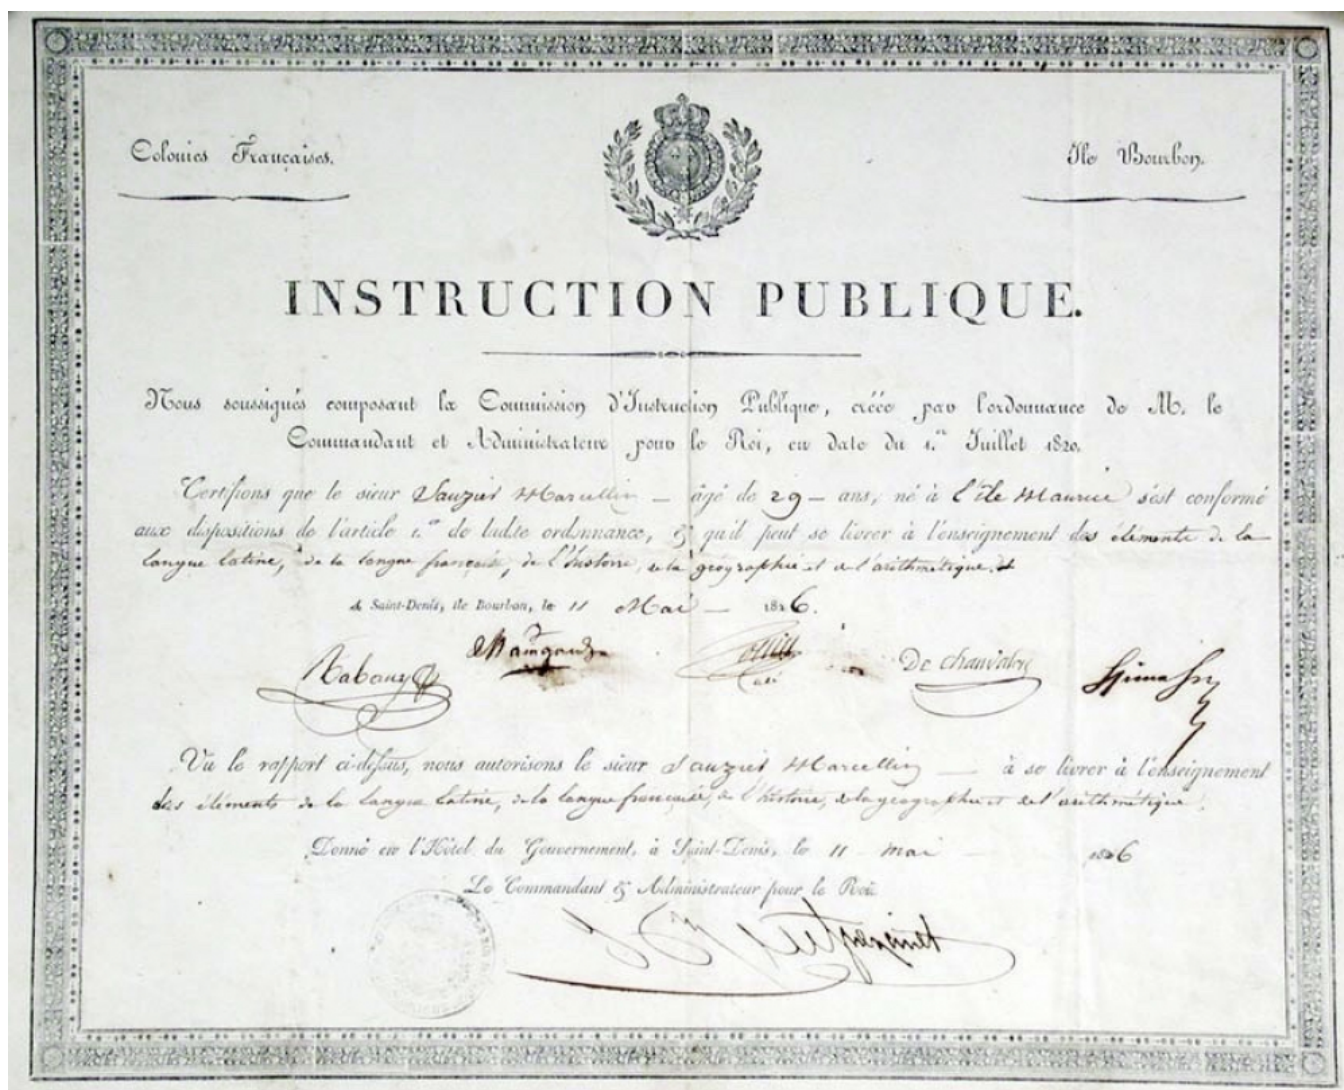 Colonies Françaises.
Ile Bourbon.
INSTRUCTION PUBLIQUE.
Nous soussignés composant la Commission d'Instruction Publique, créée par l'ordonnance de M. le
Commandant et Administrateur pour le Roi, en date du 1.er Juillet 1820.
Certifions que le sieur Sauzier Marcellin — âgé de 29 — ans, né à l'île Maurice s'est conformé
aux dispositions de l'article 1.er de ladite ordonnance, & qu'il peut se livrer à l'enseignement des éléments de la
langue latine, de la langue française, de l'histoire, de la géographie et de l'arithmétique.
A Saint-Denis, île Bourbon, le 11 Mai — 1826.
Rabany
De Chanvalon
Vu le rapport ci-dessus, nous autorisons le sieur Sauzier Marcellin — à se livrer à l'enseignement
des éléments de la langue latine, de la langue française, de l'histoire, de la géographie et de l'arithmétique.
Donné en l'Hôtel du Gouvernement, à Saint-Denis, le 11 mai 1826
Le Commandant & Administrateur pour le Roi.